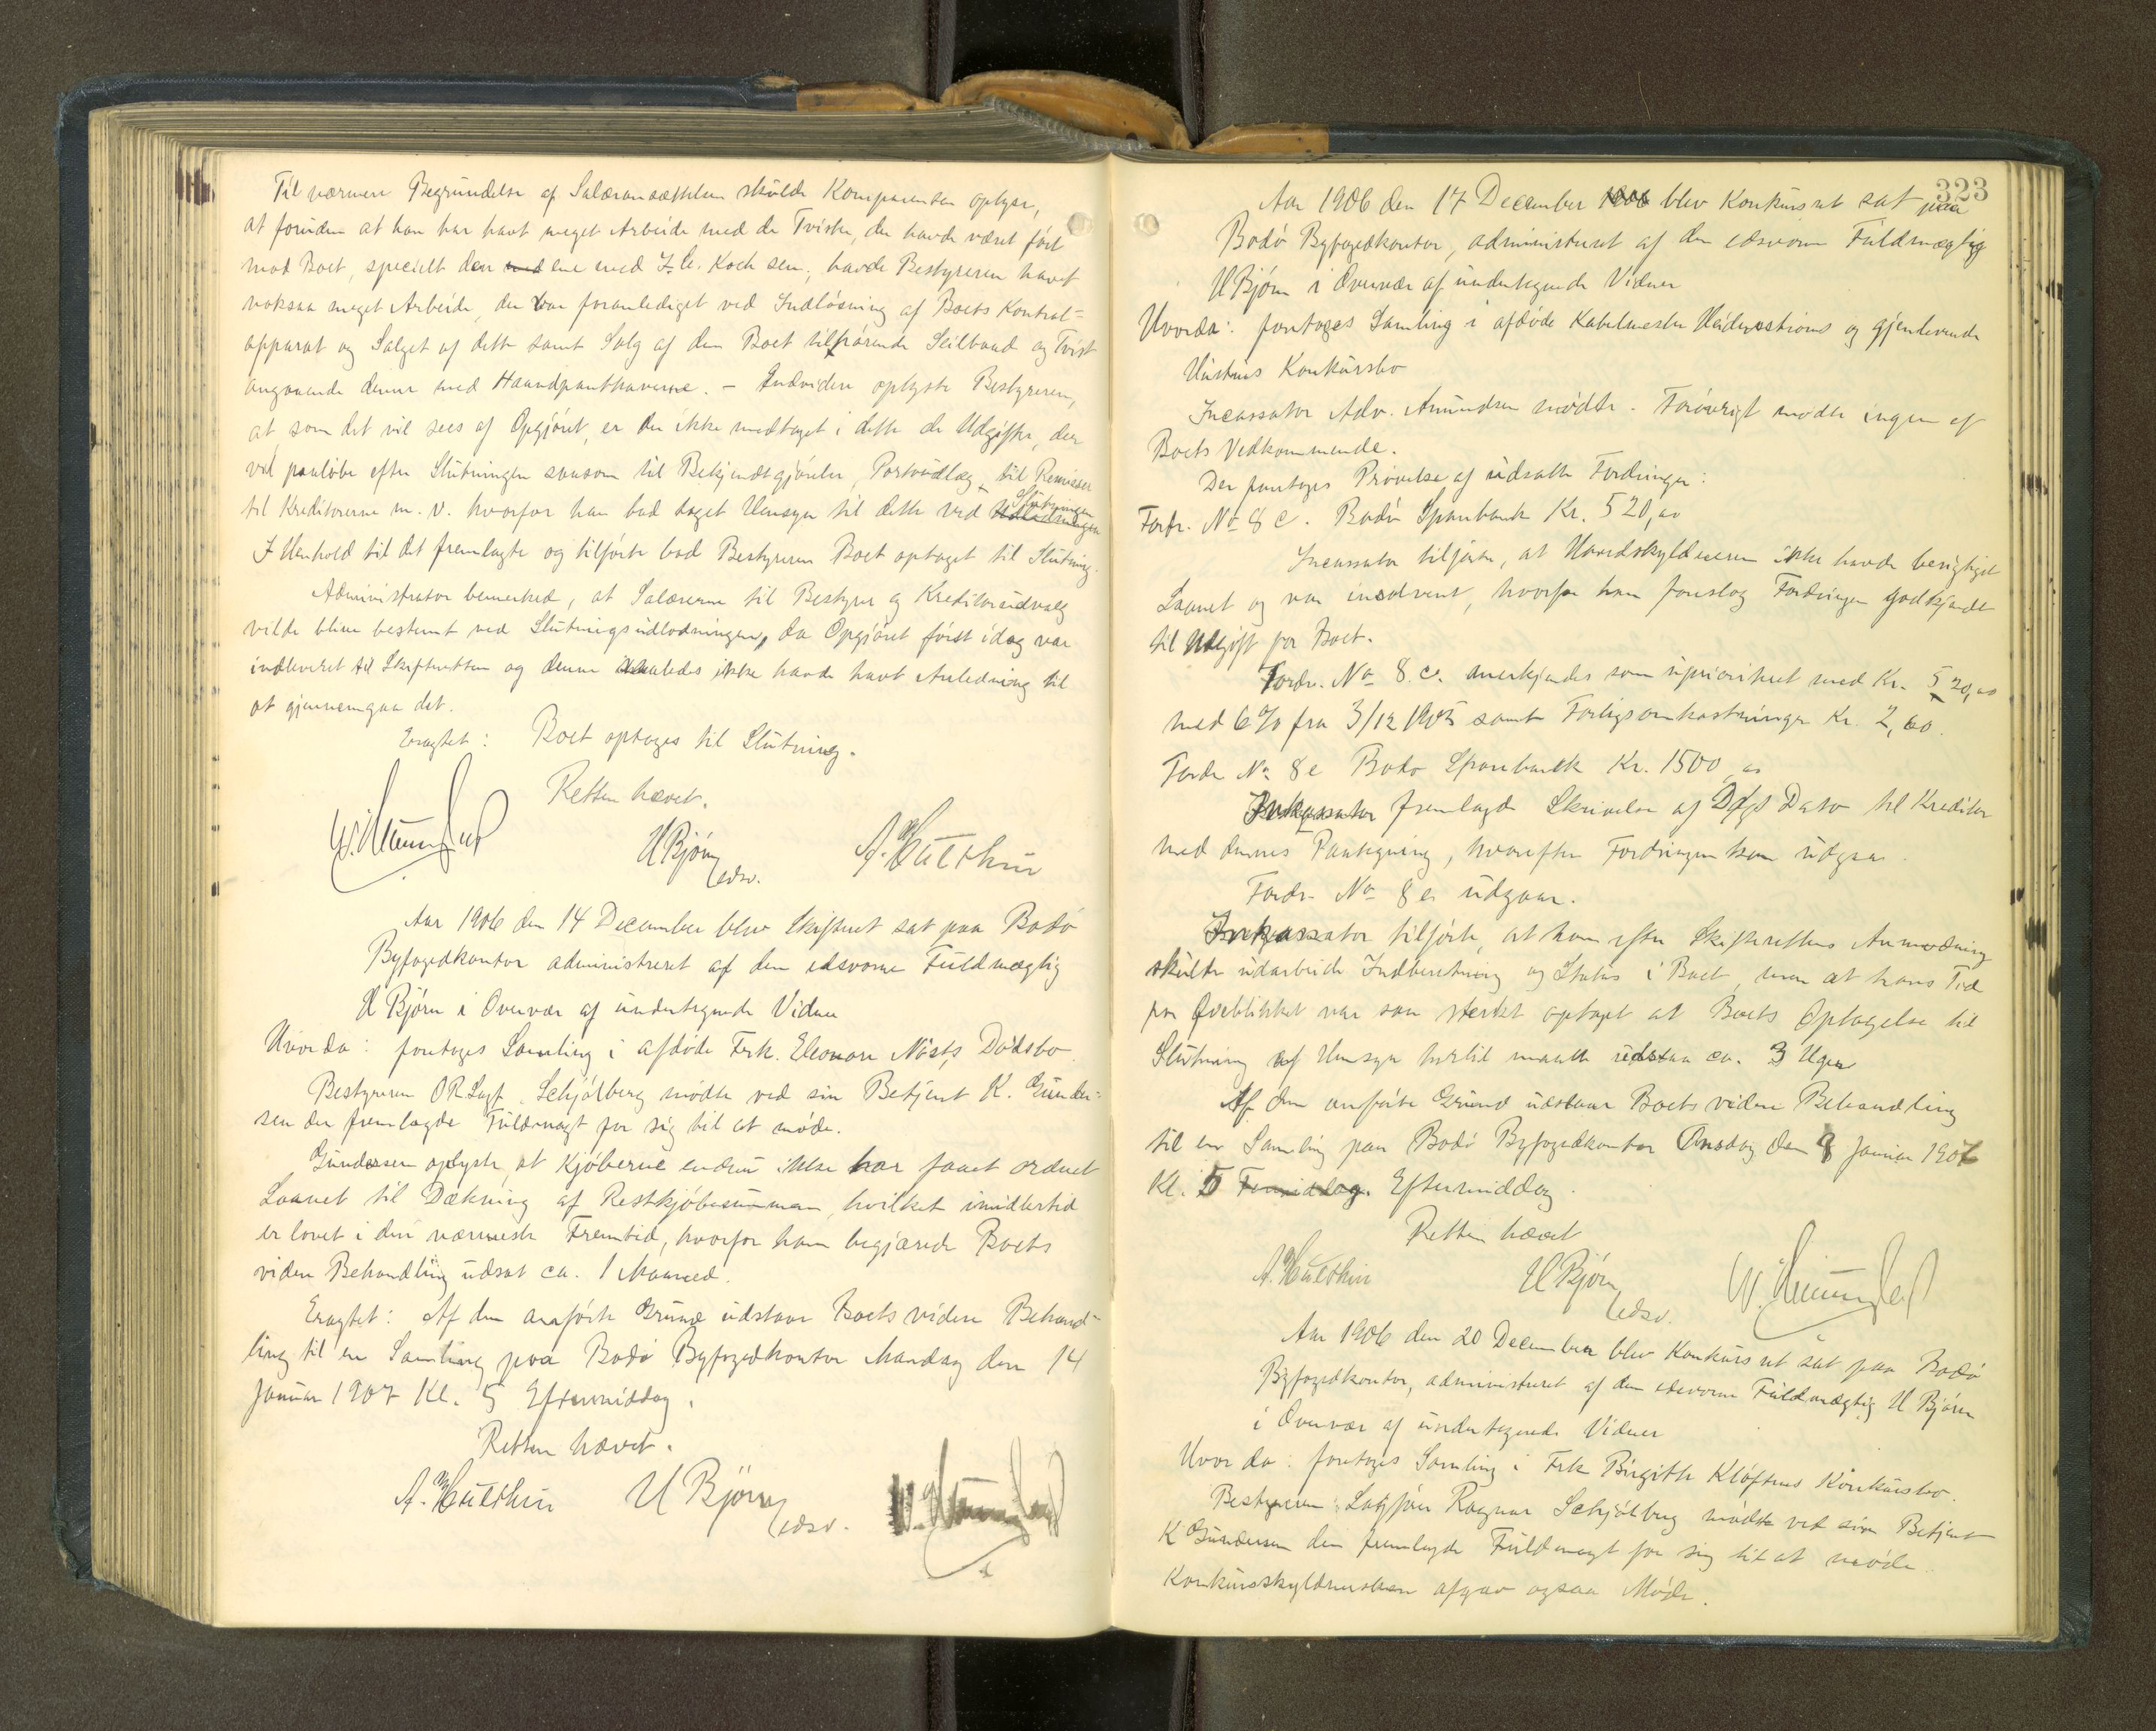 Til nærmere Begrundelse af Salæransættelsen skulde Komparenten oplyse,
at foruden at han har havt meget Arbeide med de Tvister, der havde været ført
mod Boet, specielt den ene med J. C. Koch sen., havde Bestyreren havt
voksaa meget Arbeide, der var foranlediget ved Indløsning af Boets Kontrol-
apparat og Salget af dette samt Salg af den Boet tilhørende Seilbaad og Tvist
angaaende denne med Haandpanthaverne. – Endvidere oplyste Bestyreren,
at som det vil sees af Opgjøret, er der ikke medtaget i dette de Udgifter, der
vil paaløbe efter Slutningen saasom til Bekjendtgjørelser, Portoudlæg til Remisser
til Kreditorerne m. v. hvorfor han bad taget Hensyn til dette ved Slutningen
I Henhold til det fremlagte og tilførte bad Bestyreren Boet optaget til Slutning.
Administrator bemerked, at Salærerne til Bestyrer og Kreditorudvalg
vilde blive bestemt ved Slutningsudlodningen, da Opgjøret først idag var
indleveret til Skifteretten og denne saaledes ikke havde havt Anledning til
at gjennemgaa det.
Eragtet: Boet optages til Slutning.
Retten hævet.
H Bjørn
edsv.
Aar 1906 den 14 December blev Skifteret sat paa Bodø
Byfogedkontor administreret af den edsvorne Fuldmægtig
H Bjørn i Overvær af undertegnede Vidner
Hvorda: foretoges Samling i afdøde Frk. Eleonore Næsts Dødsbo
Bestyreren O.R.Sagf. Schjølberg mødte ved sin Betjent K. Gunder-
sen der fremlagde Fuldmagt for sig til at møde.
Gundersen oplyste, at Kjøberne endnu ikke har faaet ordnet
Laanet til Dækning af Restkjøbesummen, hvilket imidlertid
er lovet i den nærmeste Fremtid, hvorfor han begjærede Boets
videre Behandling udsat ca. 1 Maaned.
Eragtet: Af den anførte Grund udstaar Boets videre Behand-
ling til en Samling paa Bodø Byfogedkontor Mandag den 14
Januar 1907 Kl. 5 Eftermiddag.
Retten hævet.
H Bjørn
edsv.
323
Aar 1906 den 17 December blev Konkursret sat paa
Bodø Byfogedkontor, administreret af den edsvorne Fuldmægtig
H Bjørn i Overvær af undertegnede Vidner
Hvorda: foretoges Samling i afdøde Kabelmester Heiderstrøms og gjenlevende
Hustrus Konkursbo
Incassator Adv. Amundsen mødte. Forøvrigt mødte ingen af
Boets Vedkommende.
Der foretoges Prøvelse af udsatte Fordringer:
Fordr. No 8 c. Bodø Sparebank Kr. 520,00
Incassator tilførte, at Hovedskyldneren ikke havde berigtiget
Laanet og var insolvent, hvorfor han foreslog Fordringen godkjendt
til Udgift for Boet.
Fordr. No 8 c. anerkjendes som uprioriteret med Kr. 520,00
med 6% fra 3/12 1905 samt Forligsomkostninger Kr. 2,60.
Fordr No 8 e Bodø Sparebank Kr. 1500,00
Inkassator fremlagde Skrivelse af Dags Dato til Kreditor
med dennes Paategning, hvorefter Fordringen kan udgaa.
Fordr. No 8 e udgaar.
Inkassator tilførte, at han efter Skifterettens Anmodning
skulde udarbeide Indberetning og Status i Boet, men at hans Tid
for Øieblikket var saa sterkt optaget at Boets Optagelse til
Slutning af Hensyn hertil maatte udstaa ca. 3 Uger
Af den anførte Grund udstaar Boets videre Behandling
til en Samling paa Bodø Byfogedkontor Onsdag den 9 Januar 1907
Kl. 5 Formiddag. Eftermiddag.
Retten hævet
H Bjørn
edsv.
Aar 1906 den 20 December blev Konkursret sat paa Bodø
Byfogedkontor, administreret af den edsvorne Fuldmægtig H Bjørn
i Overvær af undertegnede Vidner
Hvor da: foretoges Samling i Frk Birgitte Kløftens Konkursbo.
Bestyreren Sagfører Ragnar Schjølberg mødte ved sin Betjent
K Gundersen den fremlagde Fuldmagt for sig til at møde.
Konkursskyldnersken afgav ogsaa Møde.